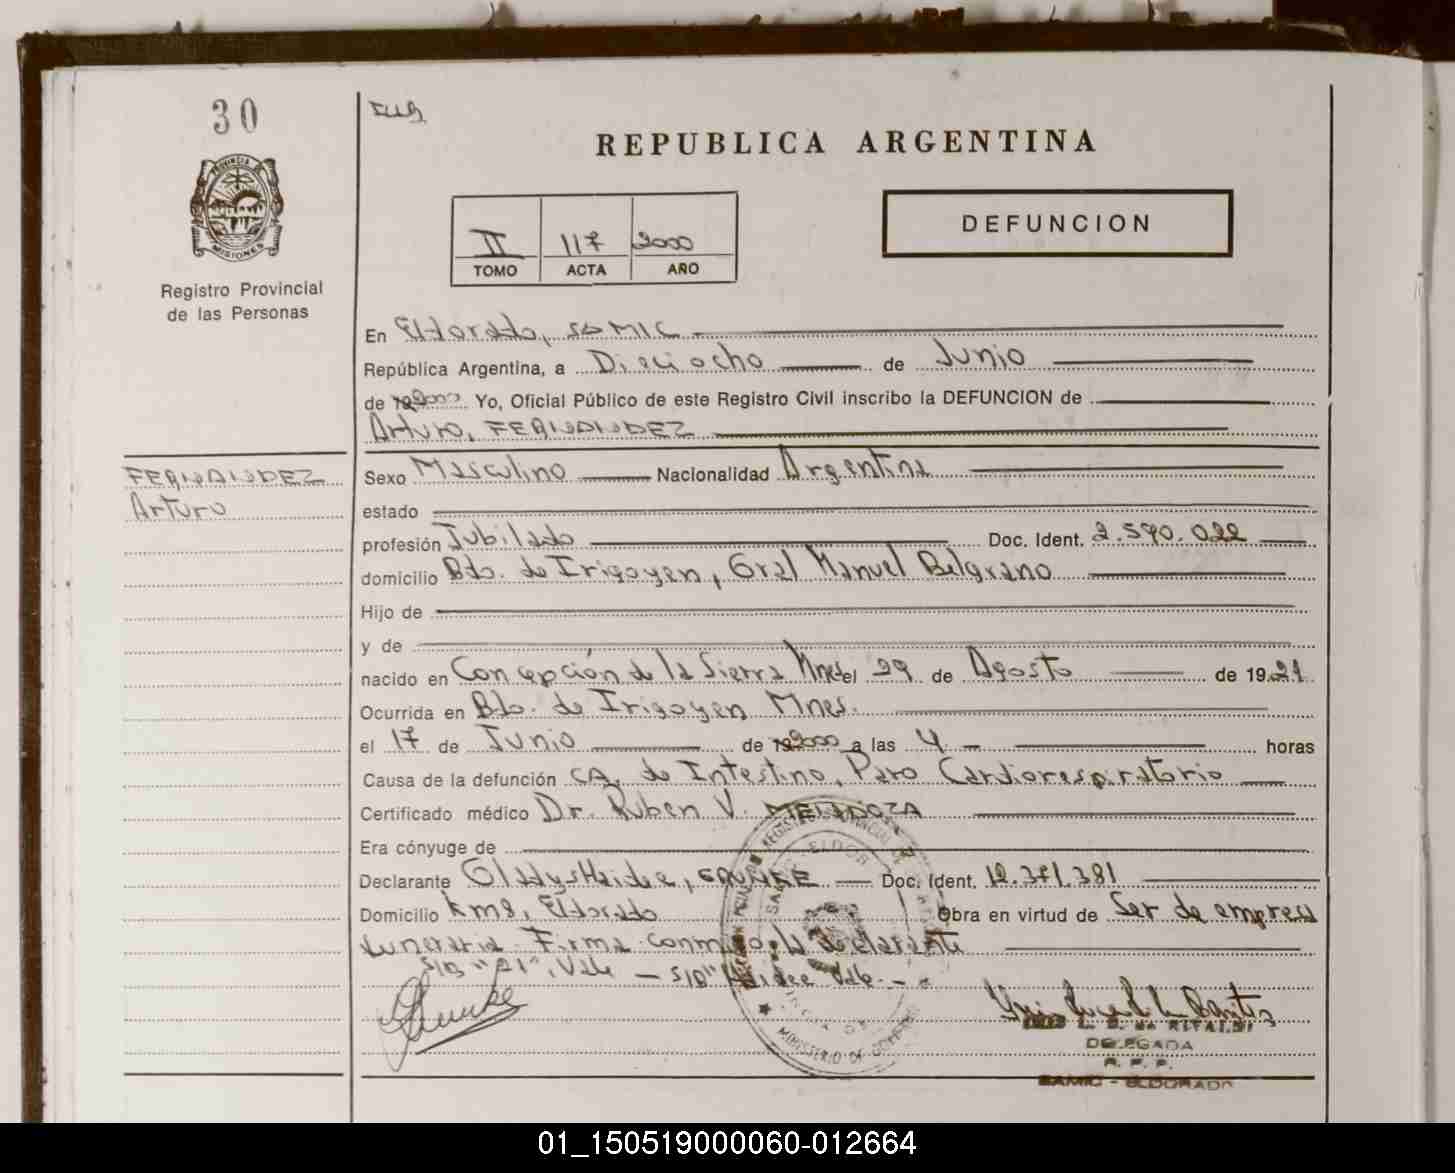 30
PROVINCIA DE
MISIONES
Registro Provincial
de las Personas
REPUBLICA ARGENTINA
II 117 2000
TOMO ACTA AÑO
DEFUNCION
En Eldorado, SAMIC
República Argentina, a Dieciocho de Junio
de 2000 Yo, Oficial Público de este Registro Civil inscribo la DEFUNCION de
Arturo, FERNANDEZ
FERNANDEZ
Arturo
Sexo Masculino Nacionalidad Argentina
estado
profesión Jubilado Doc. Ident. 2.590.022
domicilio Bdo. de Irigoyen, Gral Manuel Belgrano
Hijo de
y de
nacido en Concepción de la Sierra Mnes el 29 de Agosto de 1921
Ocurrida en Bdo. de Irigoyen Mnes.
el 17 de Junio de 2000 a las 4 horas
Causa de la defunción CA. de Intestino, Paro Cardiorespiratorio
Certificado médico Dr. Ruben V. MENDOZA
Era cónyuge de
Declarante Gladys Haidee, Doc. Ident. 12.371.381
Domicilio km 8, Eldorado Obra en virtud de Ser de empresa
funeraria. Firma conmigo la declarante
S/B "21", Vale — S/B "Haidee Vale. -
MINISTERIO DE GOBIERNO
DELEGADA
R. P. P.
SAMIC - ELDORADO
01_150519000060-012664